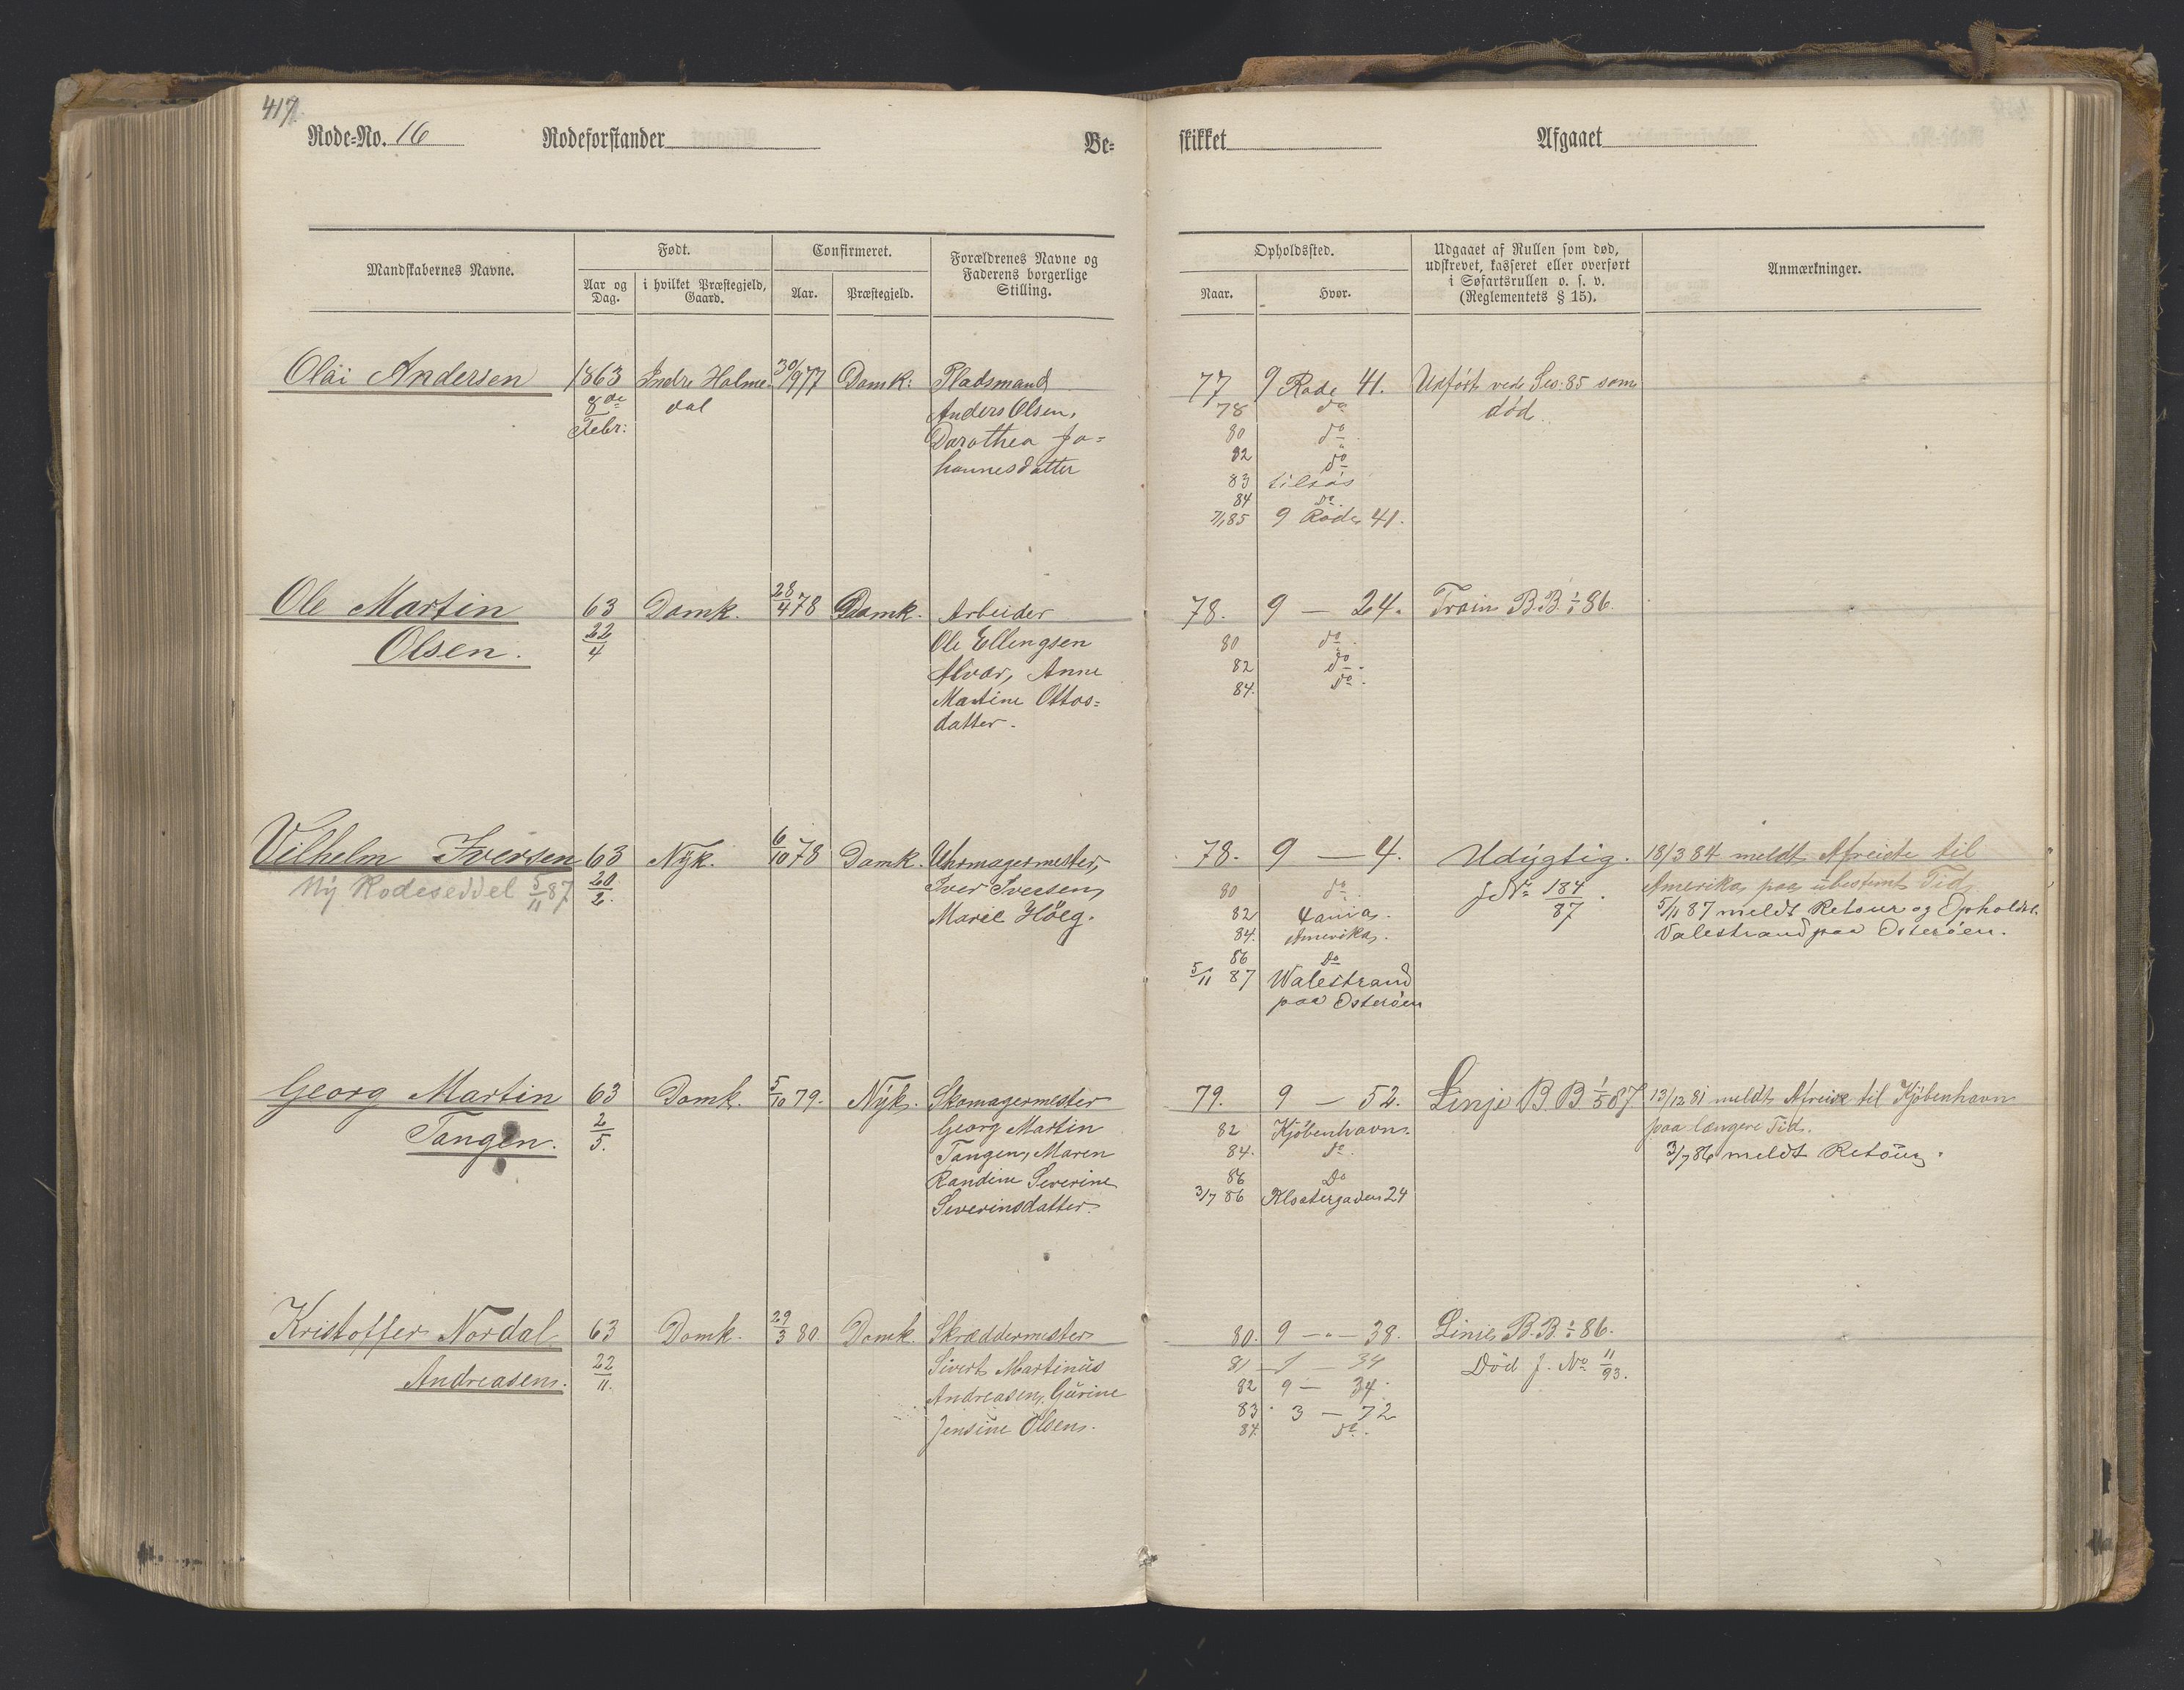 417.
Rode-No. 16 Rodeforstander Be-
skikket Afgaaet
Mandskabernes Navne.
Født.
Aar og Dag.
i hvilket Præstegjeld, Gaard.
Confirmeret.
Aar.
Præstegjeld.
Forældrenes Navne og
Faderens borgerlige
Stilling.
Opholdssted.
Naar.
Hvor.
Udgaaet af Rullen som død,
udskrevet, kasseret eller overført
i Søfartsrullen o. s. v.
(Reglementets § 15).
Anmærkninger.
Olai Andersen 1863 Indre Holme- 30/9 77 Domk: Pladsmand
8de dal Anders Olsen,
Febr: Dorothea Jo=
hannesdatter
77 9 Rode 41. Udført ved Ses. 85 som
78 do død.
80 do
82 do
83 tilsøs
84 do
7/1 85 9 Rode 41.
Ole Martin 63 Domk. 28/4 78 Domk. Arbeider
Olsen. 22/4 Ole Ellengsen
Alvær, Anne
Martine Ottos=
datter.
78. 9 — 24. Train B.B. 1/1 86.
80 do
82 do
84. do
Vilhelm Iversen 63 Nyk. 6/10 78 Domk. Uhrmagermester,
Ny Rodeseddel 5/11 87 20/2. Iver Iversen,
Marie Höeg.
78. 9 — 4. Udygtig. 18/3 84 meldt Afreide til
80 do J. No 184/87. Amerika, paa ubestemt Tid.
82 5/11 87 meldt Retour og Opholdst.
84. Amerika. Valestrand paa Osterøen.
86 Do
5/11 87 Walestrand
paa Osterøen
Georg Martin 63 Domk. 5/10 79. Nyk. Skomagermester
Tangen. 2/5. Georg Martin
Tangen, Maren
Randine Severine
Severinsdatter.
79. 9 — 52. Linje B.B. 1/5 87 13/12 81 meldt Afreise til Kjøbenhavn
82 Kjøbenhavn. paa længere Tid.
84. do 3/7 86 meldt Retour.
86 Do
3/7 86 Klostergaden 24
Kristoffer Nordal 63 Domk. 29/3 80 Domk. Skræddermester
Andreasen. 22/11. Sivert Martinus
Andreasen, Gurine
Jensine Olsen.
80. 9 — 38. Linie B.B. 1/1 86.
81 — 34 Död J. No 11/93.
82 9 — 34.
83 3 — 72
84. do